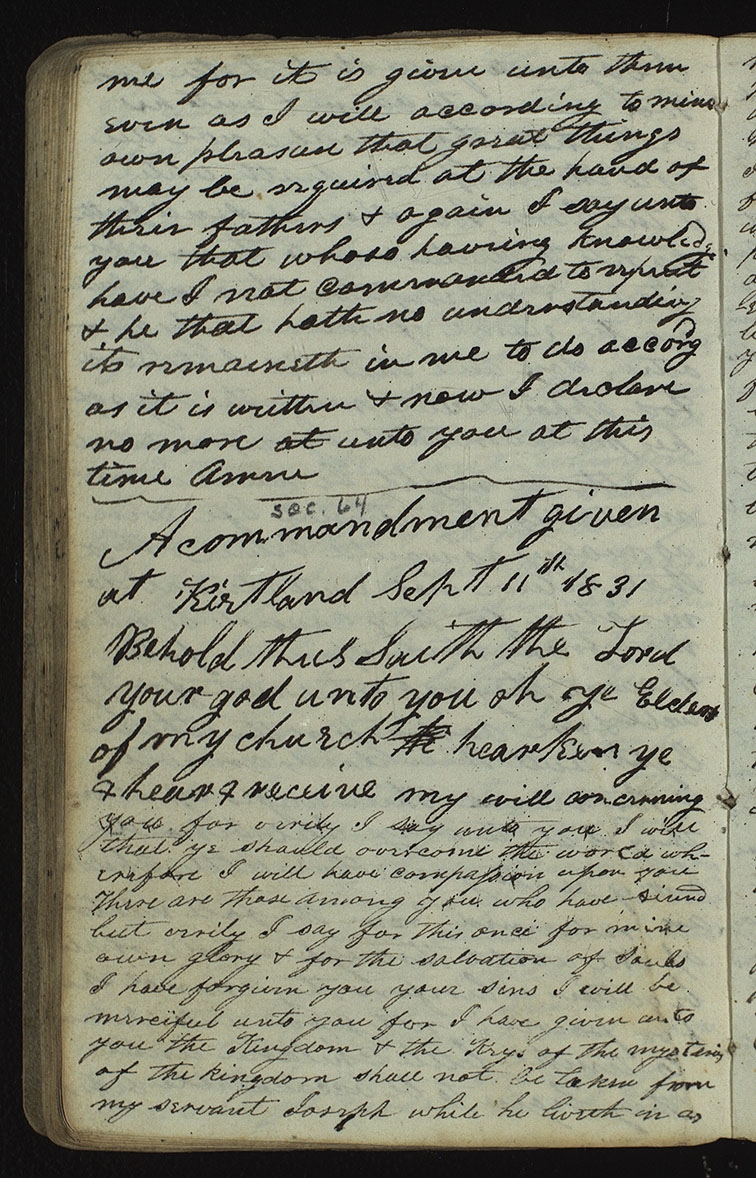 me for it is given unto them
even as I will according to mine
own pleasure that great things
may be required at the hand of
their fathers & again I say unto
you that whoso having knowledge
have I not commanded to repent
& he that hath no understanding
it remaineth in me to do accordg
as it is written & now I declare
no more at unto you at this
time Amen
sec. 64
A commandment given
at Kirtland Sept 11th 1831
Behold thus Saith the Lord
your god unto you oh ye Elders
of my church hearken ye
& hear & receive my will concerning
you for verily I say unto you I will
that ye should overcome the world wh-
erefore I will have compassion upon you
There are those among you who have sinned
but verily I say for this once for mine
own glory & for the salvation of Souls
I have forgiven you your sins I will be
merciful unto you for I have given unto
you the Kingdom & the Keys of the mysteries
of the kingdom shall not be taken from
my servant Joseph while he liveth in as